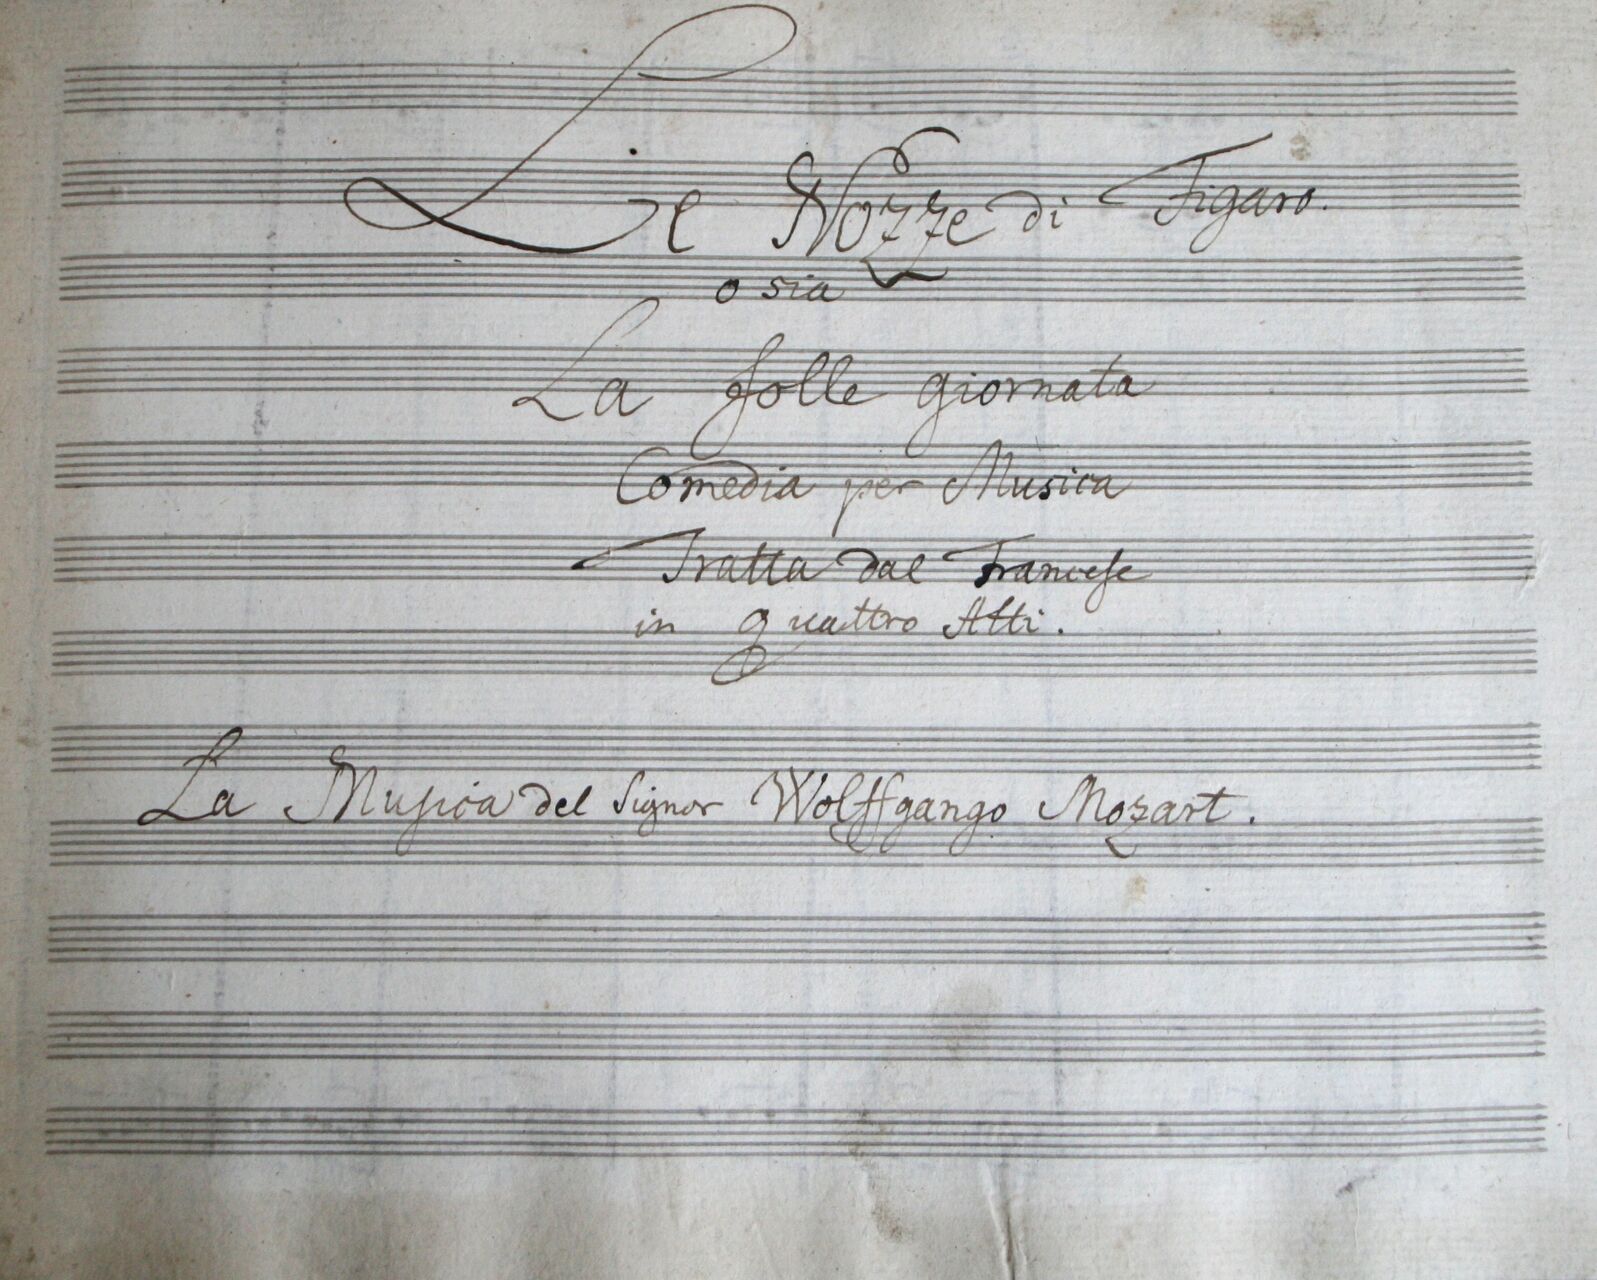 Le Nozze di Figaro.
o sia
La folle giornata
Comedia per Musica
Tratta dal Francese
in quattro Atti.
La Musica del Signor Wolffgango Mozart.